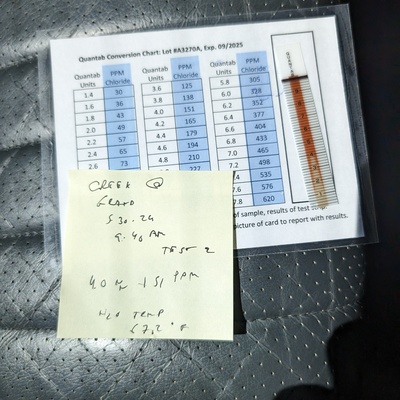 Quantab Conversion Chart: Lot #A3270A, Exp. 09/2025
Quantab Units PPM Chloride Quantab Units PPM Chloride
1.4 30 3.6 125 5.8 305
1.6 36 3.8 138 6.0 328
1.8 43 4.0 151 6.2 352
2.0 49 4.2 165 6.4 377
2.2 57 4.4 179 6.6 404
2.4 65 4.6 194 6.8 433
2.6 73 4.8 210 7.0 465
227 7.2 498
7.4 535
7.6 576
7.8 620
of sample, results of test strip
picture of card to report with results.
CREEK @
GRAND
5 30.24
9:40 AM
TEST 2
4.0 151 PPM
H2O TEMP
67.2 °F